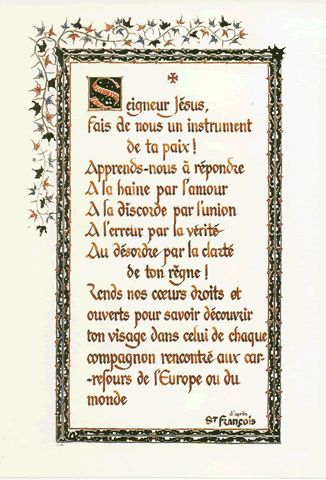 Seigneur Jésus,
fais de nous un instrument
de ta paix !
Apprends-nous à répondre
A la haine par l'amour
A la discorde par l'union
A l'erreur par la vérité
Au désordre par la clarté
de ton règne !
Rends nos cœurs droits et
ouverts pour savoir découvrir
ton visage dans celui de chaque
compagnon rencontré aux car-
-refours de l'Europe ou du
monde
d'après
St François